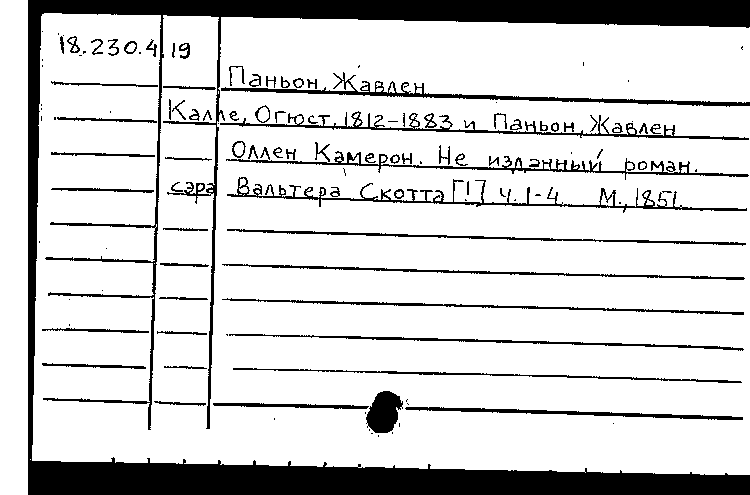 18.230.4.19
Паньон, Жавлен
Калле, Огюст, 1812-1883 и Паньон, Жавлен
Оллен Камерон. Не изданный роман.
сара Вальтера Скотта [!] Ч. 1-4 М., 1851.